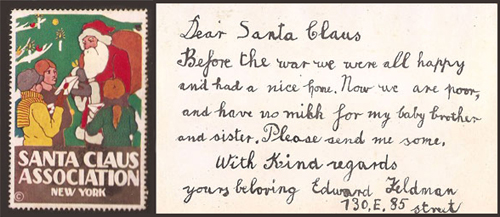 SANTA CLAUS
ASSOCIATION
NEW YORK
©
Dear Santa Claus
Before the war we were all happy
and had a nice home. Now we are poor,
and have no milk for my baby brother
and sister. Please send me some.
With Kind regards
yours beloving Edward Feldman
130, E, 85
street